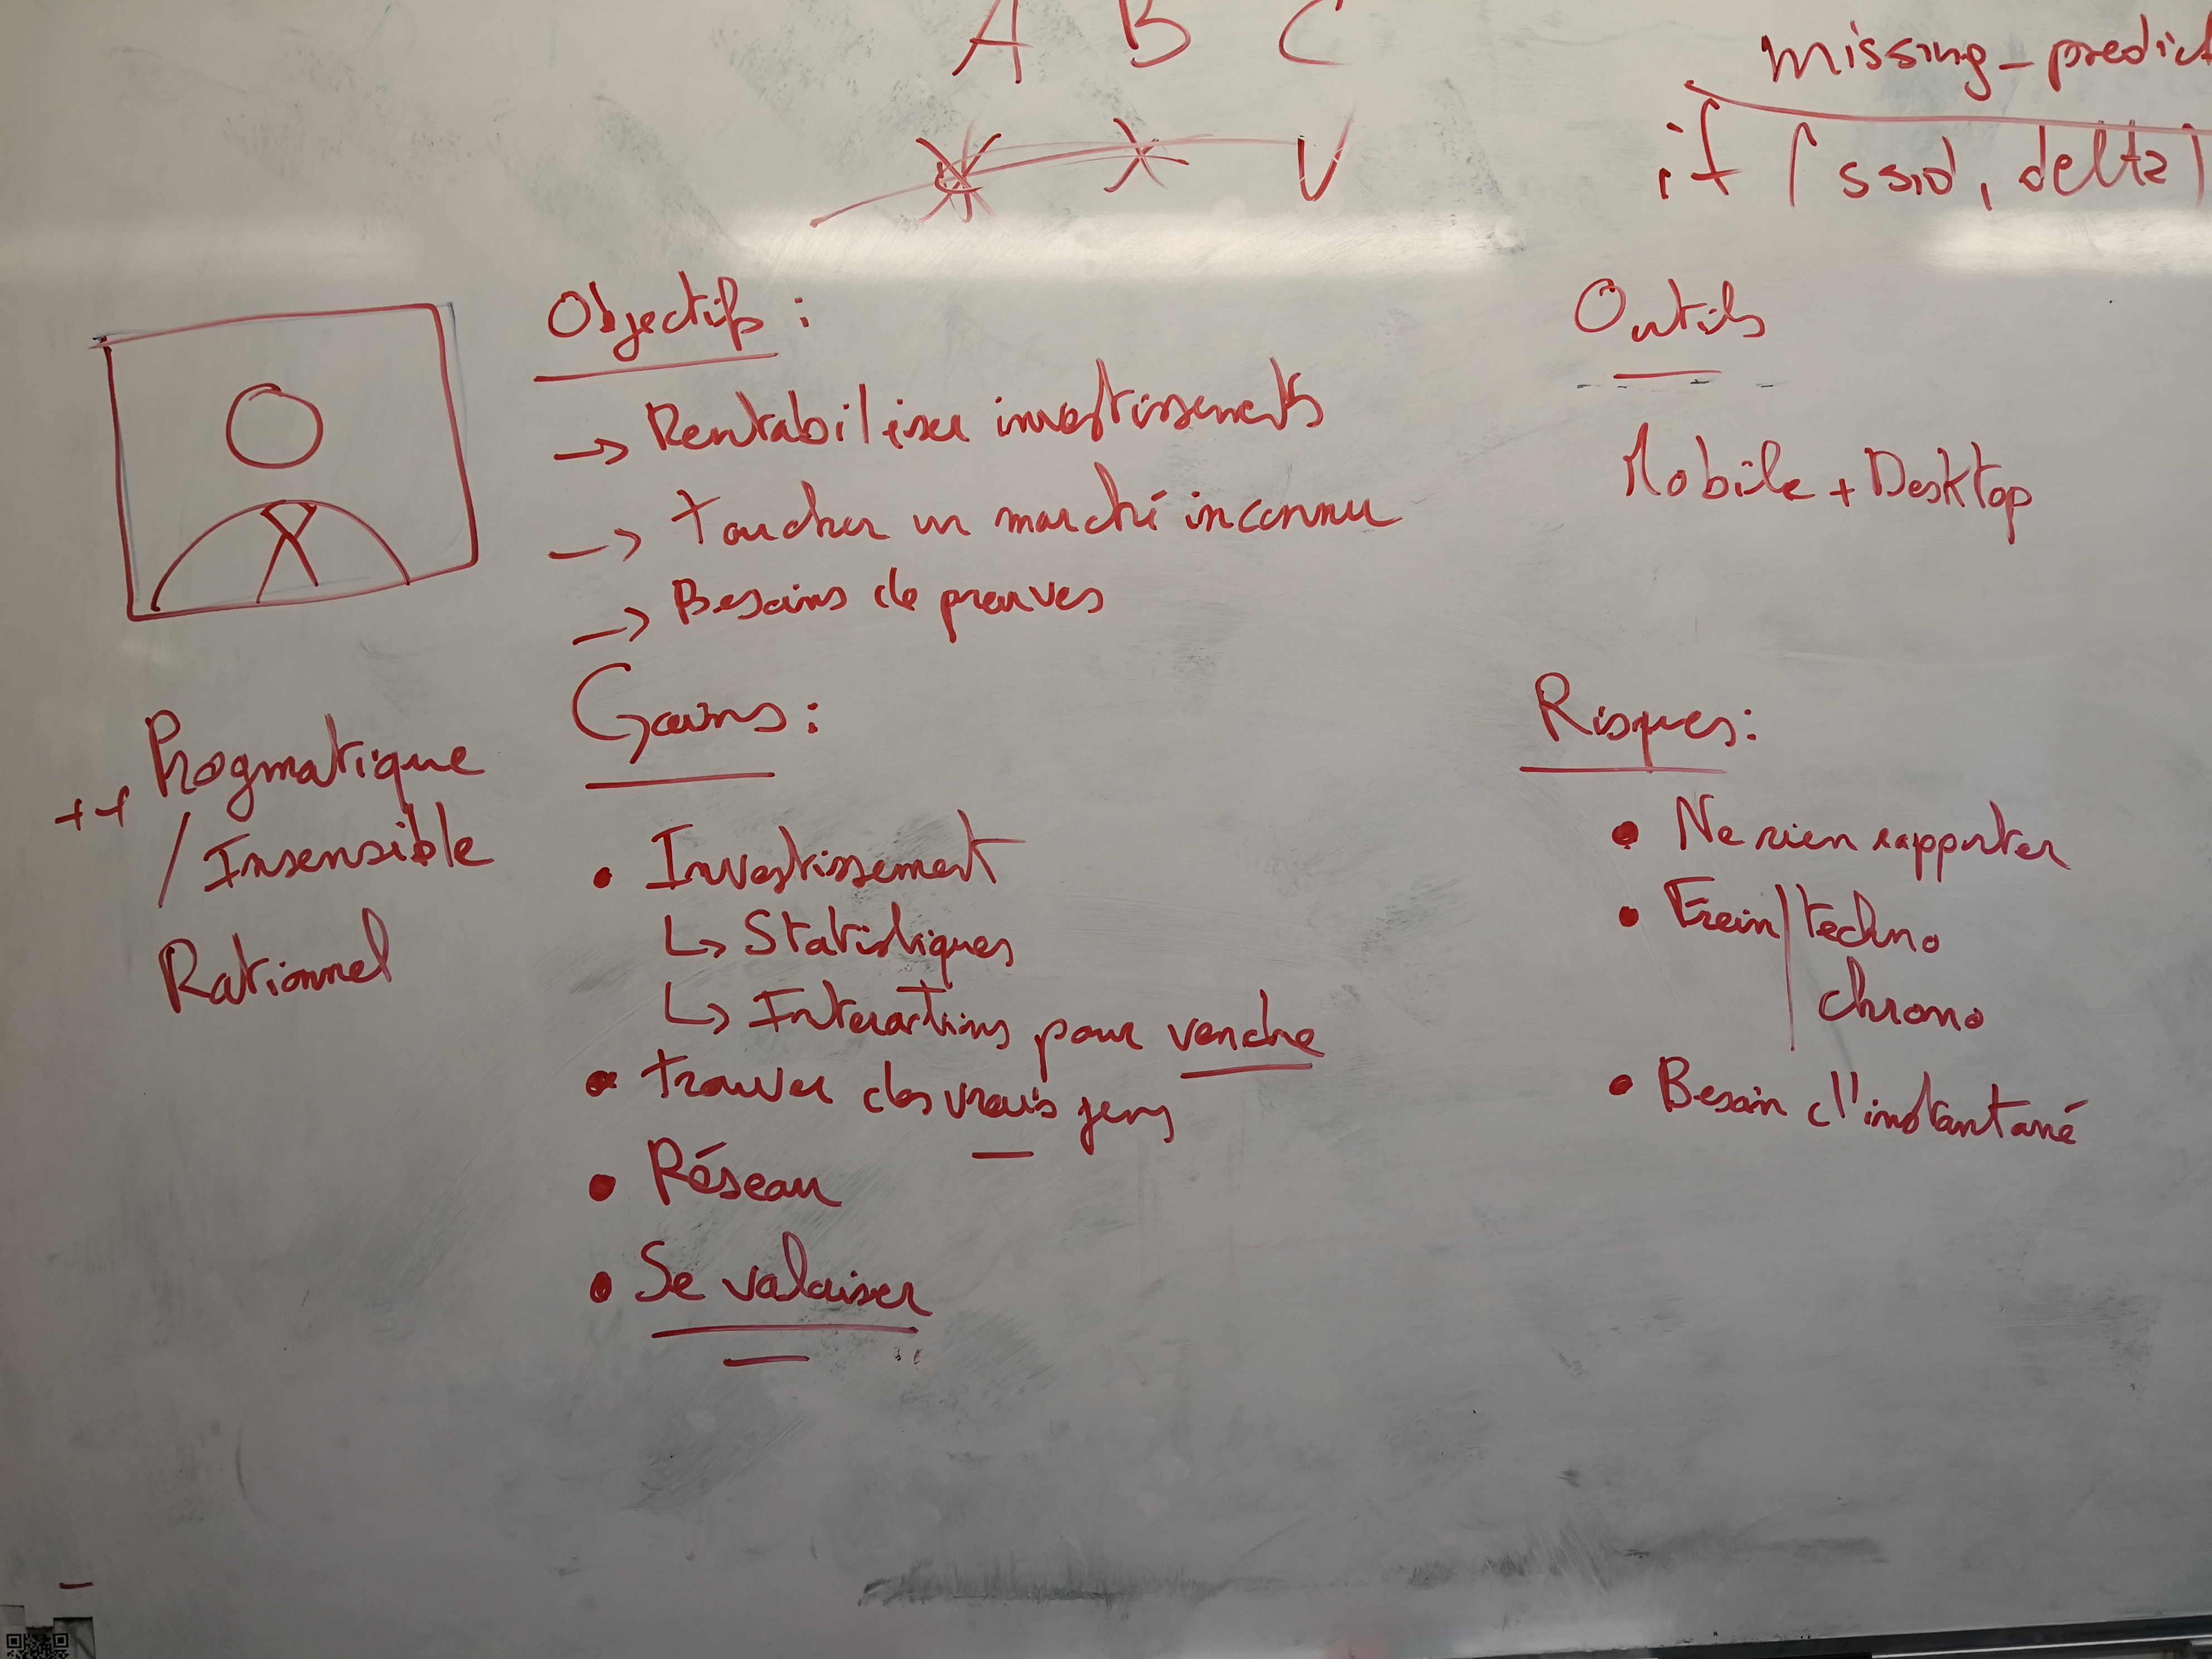 A B C
missing_predict
if (ssid, delta)
Objectifs :
→ Rentabiliser investissements
→ toucher un marché inconnu
→ Besoins de preuves
Outils
Mobile + Desktop
++ Pragmatique
/ Insensible
Rationnel
Gains :
• Investissement
↳ Statistiques
↳ Interactions pour vendre
• trouver des vrais gens
• Réseau
• Se valoriser
Risques :
• Ne rien rapporter
• Frein | techno
chrono
• Besoin d'instantané